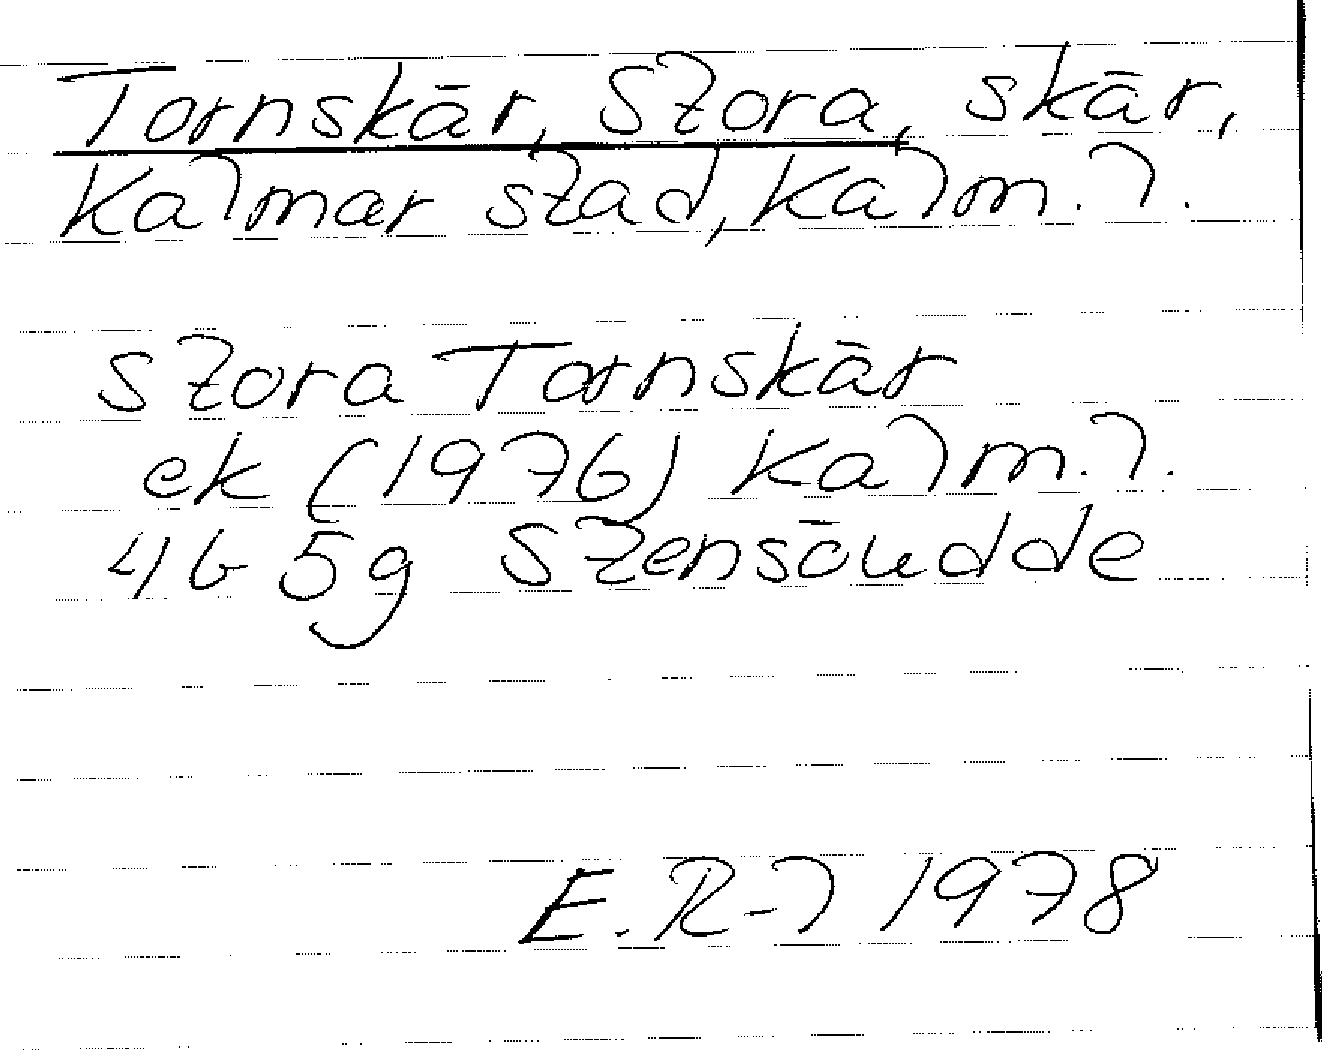 Tornskär, Stora, skär,
Kalmar stad, Kalm. l.
Stora Tornskär
ek (1976) Kalm. l.
4G 5g Stensöudde
E. R-l 1978